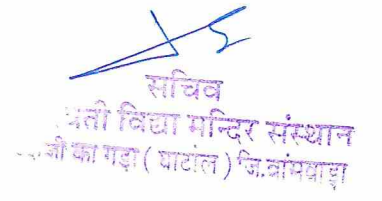 सचिव
विद्या मन्दिर संस्थान
जी का गड़ा ( घाटोल ) जि.बांसवाड़ा